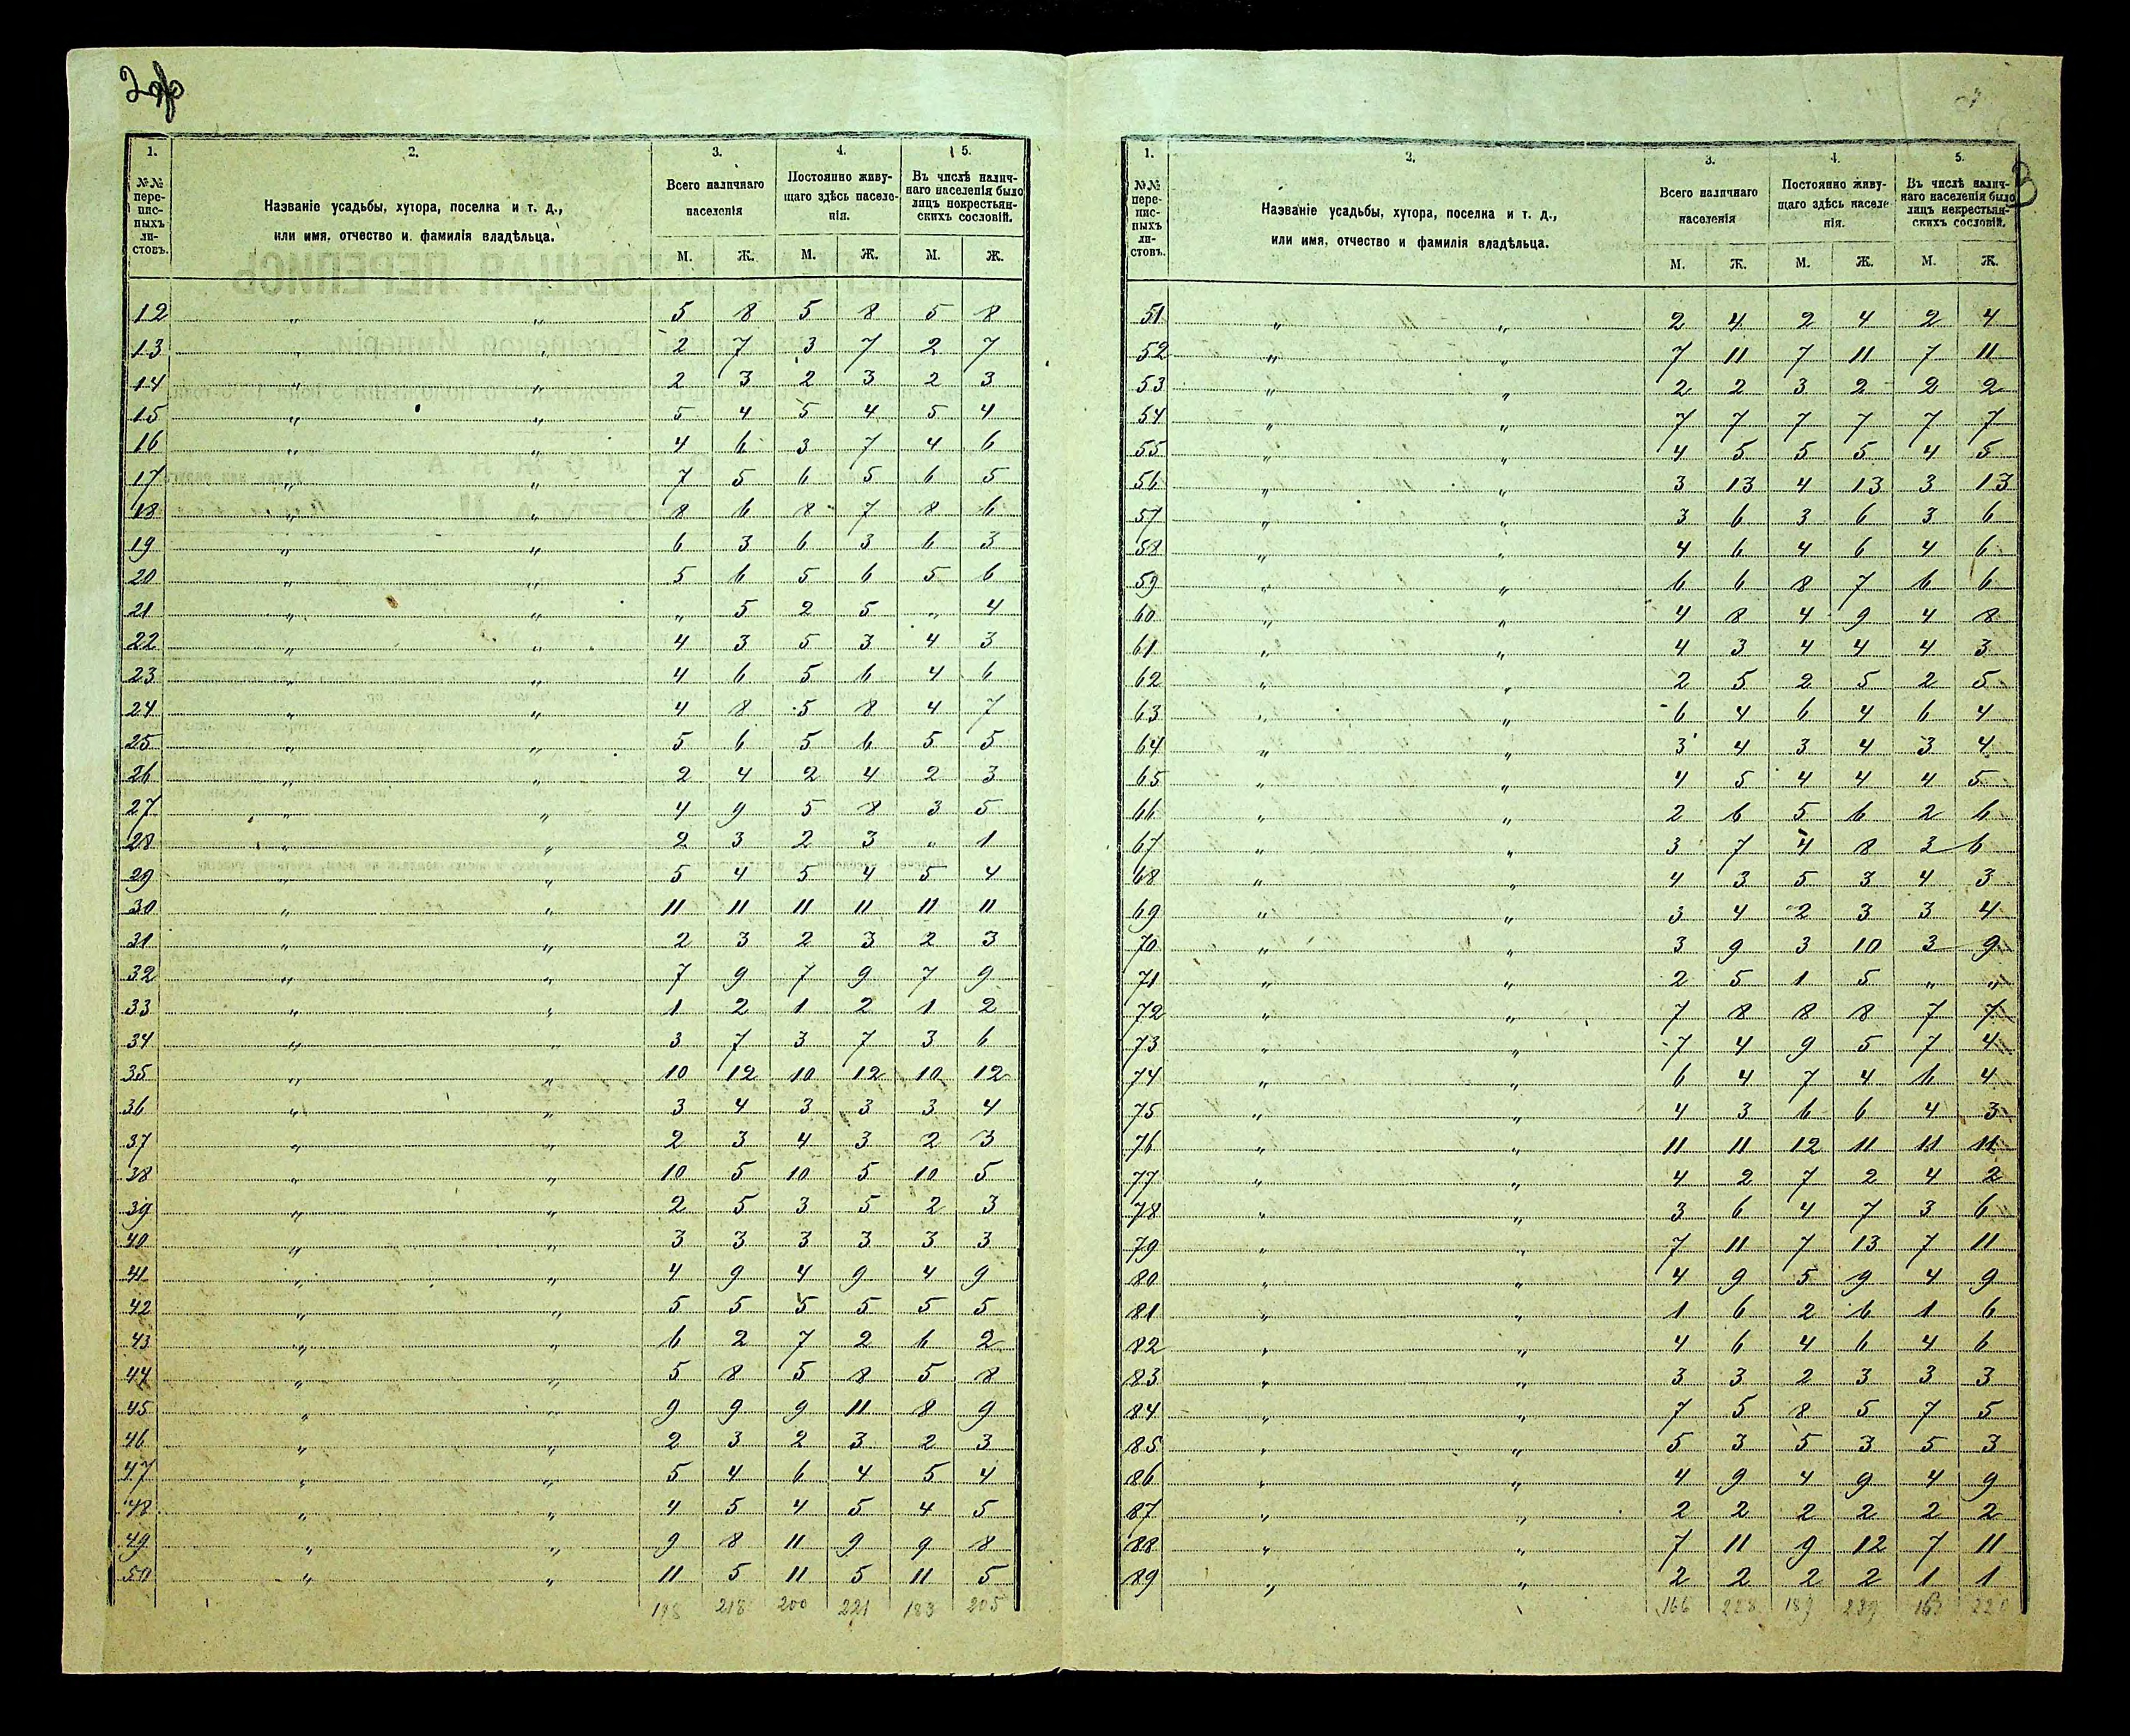 2об
1. 2. 3. 4. 5.
№№ переписныхъ листовъ.
Названіе усадьбы, хутора, поселка и т. д., или имя, отчество и фамилія владѣльца.
Всего наличнаго населенія
Постоянно живущаго здѣсь населенія.
Въ числѣ наличнаго населенія было лицъ некрестьянскихъ сословій.
М. Ж. М. Ж. М. Ж.
12 „ „ 5 8 5 8 5 8
13 „ „ 2 7 3 7 2 7
14 „ „ 2 3 2 3 2 3
15 „ „ 5 4 5 4 5 4
16 „ „ 4 6 3 7 4 6
17 „ „ 7 5 6 5 6 5
18 „ „ 8 6 8 7 8 6
19 „ „ 6 3 6 3 6 3
20 „ „ 5 6 5 6 5 6
21 „ „ „ 5 2 5 „ 4
22 „ „ 4 3 5 3 4 3
23 „ „ 4 6 5 6 4 6
24 „ „ 4 8 5 8 4 7
25 „ „ 5 6 5 6 5 5
26 „ „ 2 4 2 4 2 3
27 „ „ 4 9 5 8 3 5
28 „ „ 2 3 2 3 „ 1
29 „ „ 5 4 5 4 5 4
30 „ „ 11 11 11 11 11 11
31 „ „ 2 3 2 3 2 3
32 „ „ 7 9 7 9 7 9
33 „ „ 1 2 1 2 1 2
34 „ „ 3 7 3 7 3 6
35 „ „ 10 12 10 12 10 12
36 „ „ 3 4 3 3 3 4
37 „ „ 2 3 4 3 2 3
38 „ „ 10 5 10 5 10 5
39 „ „ 2 5 3 5 2 3
40 „ „ 3 3 3 3 3 3
41 „ „ 4 9 4 9 4 9
42 „ „ 5 5 5 5 5 5
43 „ „ 6 2 7 2 6 2
44 „ „ 5 8 5 8 5 8
45 „ „ 9 9 9 11 8 9
46 „ „ 2 3 2 3 2 3
47 „ „ 5 4 6 4 5 4
48 „ „ 4 5 4 5 4 5
49 „ „ 9 8 11 9 9 8
50 „ „ 11 5 11 5 11 5
218 200 221 183 205
3
1. 2. 3. 4. 5.
№№ переписныхъ листовъ.
Названіе усадьбы, хутора, поселка и т. д., или имя, отчество и фамилія владѣльца.
Всего наличнаго населенія
Постоянно живущаго здѣсь населенія.
Въ числѣ наличнаго населенія было лицъ некрестьянскихъ сословій.
М. Ж. М. Ж. М. Ж.
51 „ „ 2 4 2 4 2 4
52 „ „ 7 11 7 11 7 11
53 „ „ 2 2 3 2 2 2
54 „ „ 7 7 7 7 7 7
55 „ „ 4 5 5 5 4 5
56 „ „ 3 13 4 13 3 13
57 „ „ 3 6 3 6 3 6
58 „ „ 4 6 4 6 4 6
59 „ „ 6 6 8 7 6 6
60 „ „ 4 8 4 9 4 8
61 „ „ 4 3 4 4 4 3
62 „ „ 2 5 2 5 2 5
63 „ „ 6 4 6 4 6 4
64 „ „ 3 4 3 4 3 4
65 „ „ 4 5 4 4 4 5
66 „ „ 2 6 5 6 2 6
67 „ „ 3 7 4 8 3 6
68 „ „ 4 3 5 3 4 3
69 „ „ 3 4 2 3 3 4
70 „ „ 3 9 3 10 3 9
71 „ „ 2 5 1 5 „ „
72 „ „ 7 8 8 8 7 7
73 „ „ 7 4 9 5 7 4
74 „ „ 6 4 7 4 6 4
75 „ „ 4 3 6 6 4 3
76 „ „ 11 11 12 11 11 11
77 „ „ 4 2 7 2 4 2
78 „ „ 3 6 4 7 3 6
79 „ „ 7 11 7 13 7 11
80 „ „ 4 9 5 9 4 9
81 „ „ 1 6 2 6 1 6
82 „ „ 4 6 4 6 4 6
83 „ „ 3 3 2 3 3 3
84 „ „ 7 5 8 5 7 5
85 „ „ 5 3 5 3 5 3
86 „ „ 4 9 4 9 4 9
87 „ „ 2 2 2 2 2 2
88 „ „ 7 11 9 12 7 11
89 „ „ 2 2 2 2 1 1
166 228 189 239 163 220